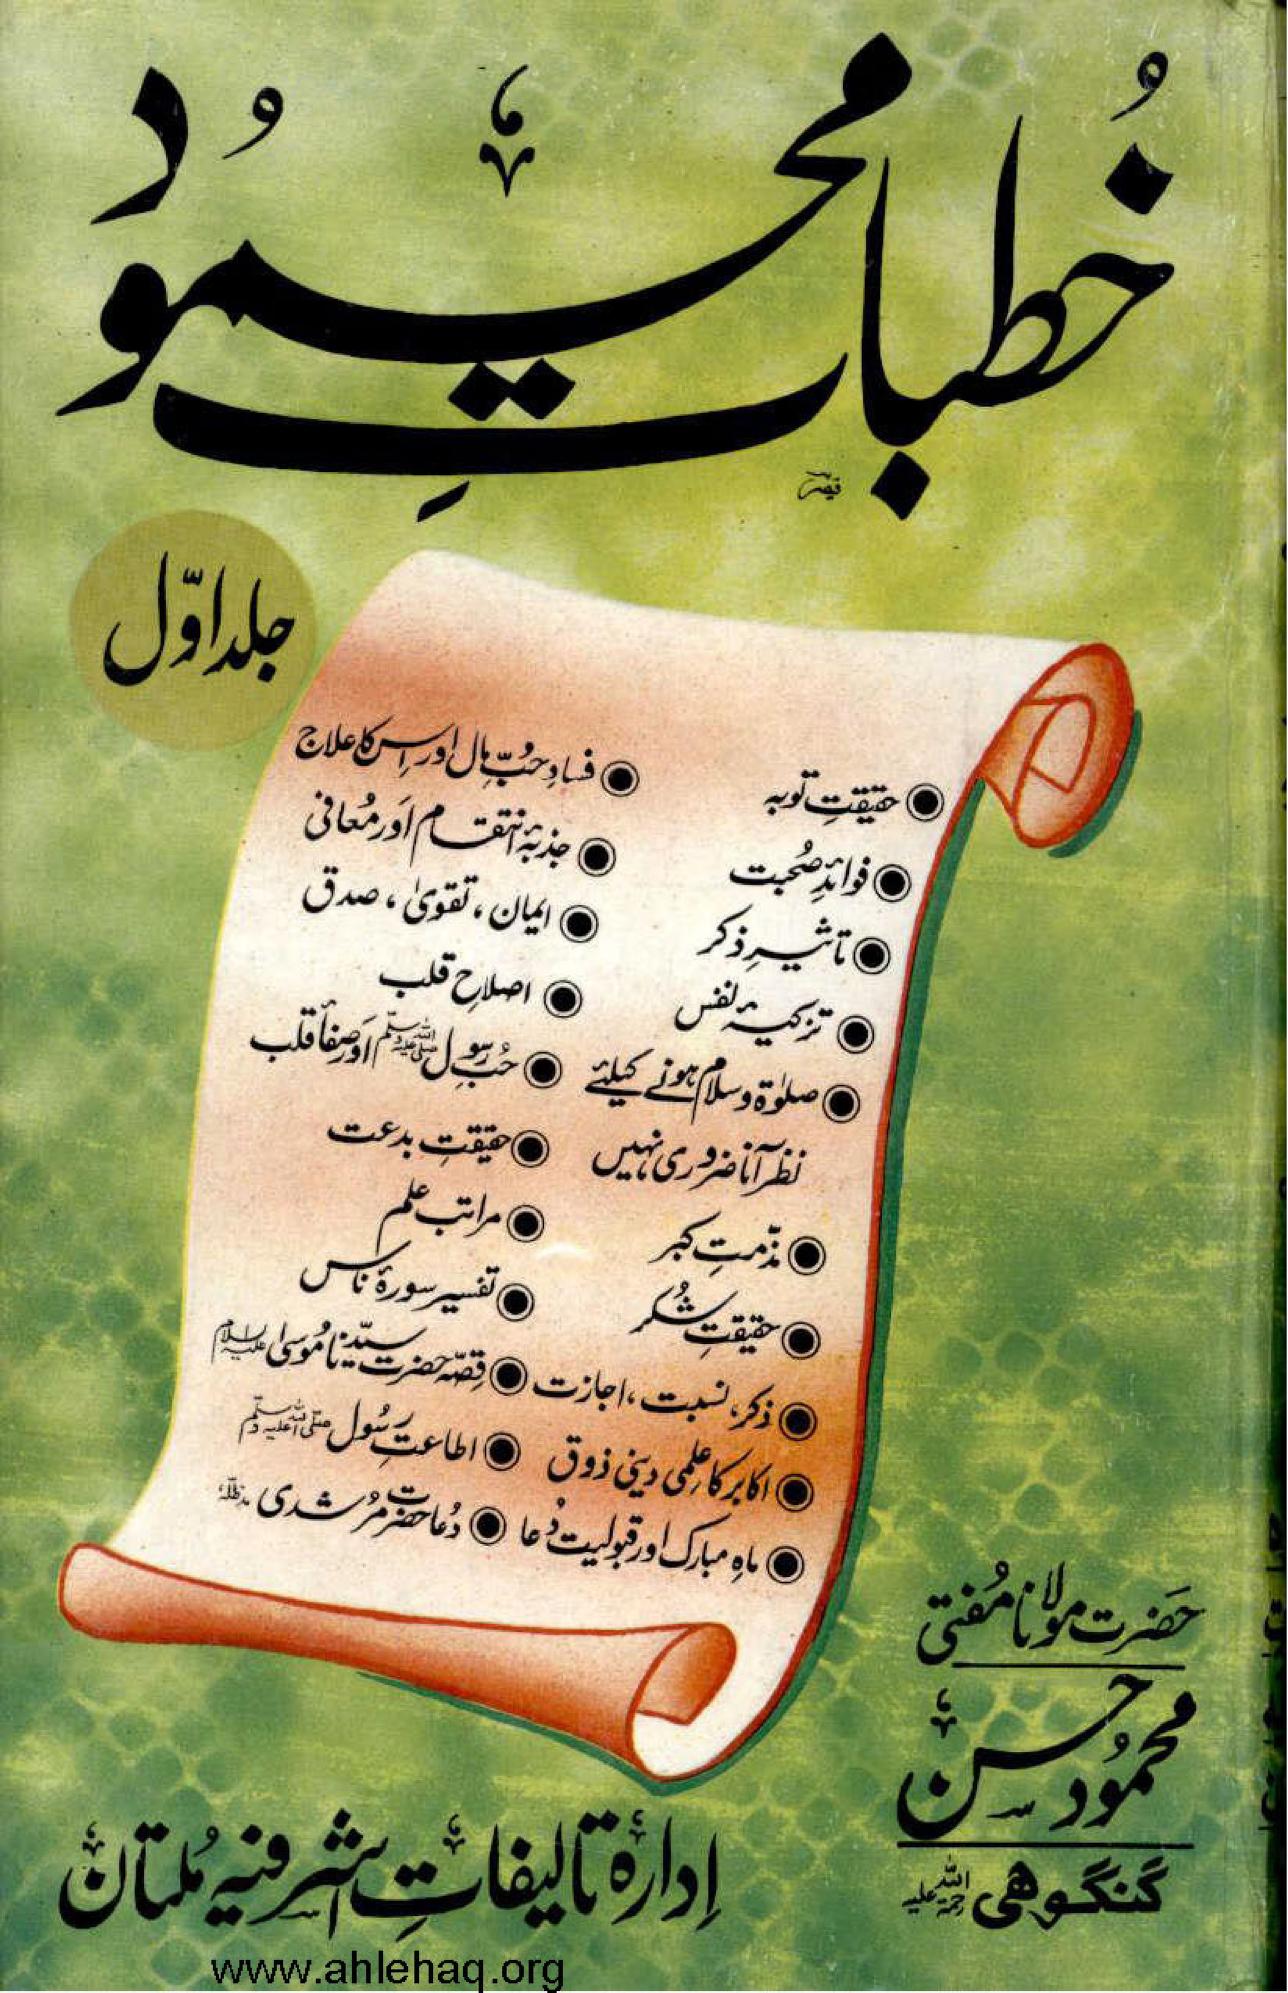 خُطباتِ محمُود
قیصر
جلد اوّل
حقیقتِ توبہ
فوائدِ صُحبت
تاثیرِ ذکر
تزکیۂ نفس
صلوٰۃ و سلام ہونے کیلئے
نظر آنا ضروری نہیں
مذّمتِ کبر
حقیقتِ شُکر
ذکر، نسبت، اجازت
اکابر کا علِمی دینی ذوق
ماہِ مبارک اور قبولیت دُعا
فسادِ حُبِّ مال اور اِس کا علاج
جذبۂ انتقام اَور مُعافی
ایمان، تقویٰ، صدق
اصلاحِ قلب
حُبِّ رسول صلی اللہ علیہ وسلم اَور صفاً قلب
حقیقتِ بدعت
مراتب علم
تفسیر سورۂ ناس
قِصّہ حضرت سیّدنا مُوسیٰ علیہ السلام
اطاعتِ رسُول صلی اللہ علیہ وسلم
دُعا حضرت مُرشدی مدظلّہٗ
حَضرت مولانا مُفتی
محمُود حسن
گنگوھی رحمۃ اللہ علیہ
اِدارہ تالیفاتِ اشرفیہ مُلتان
www.ahlehaq.org